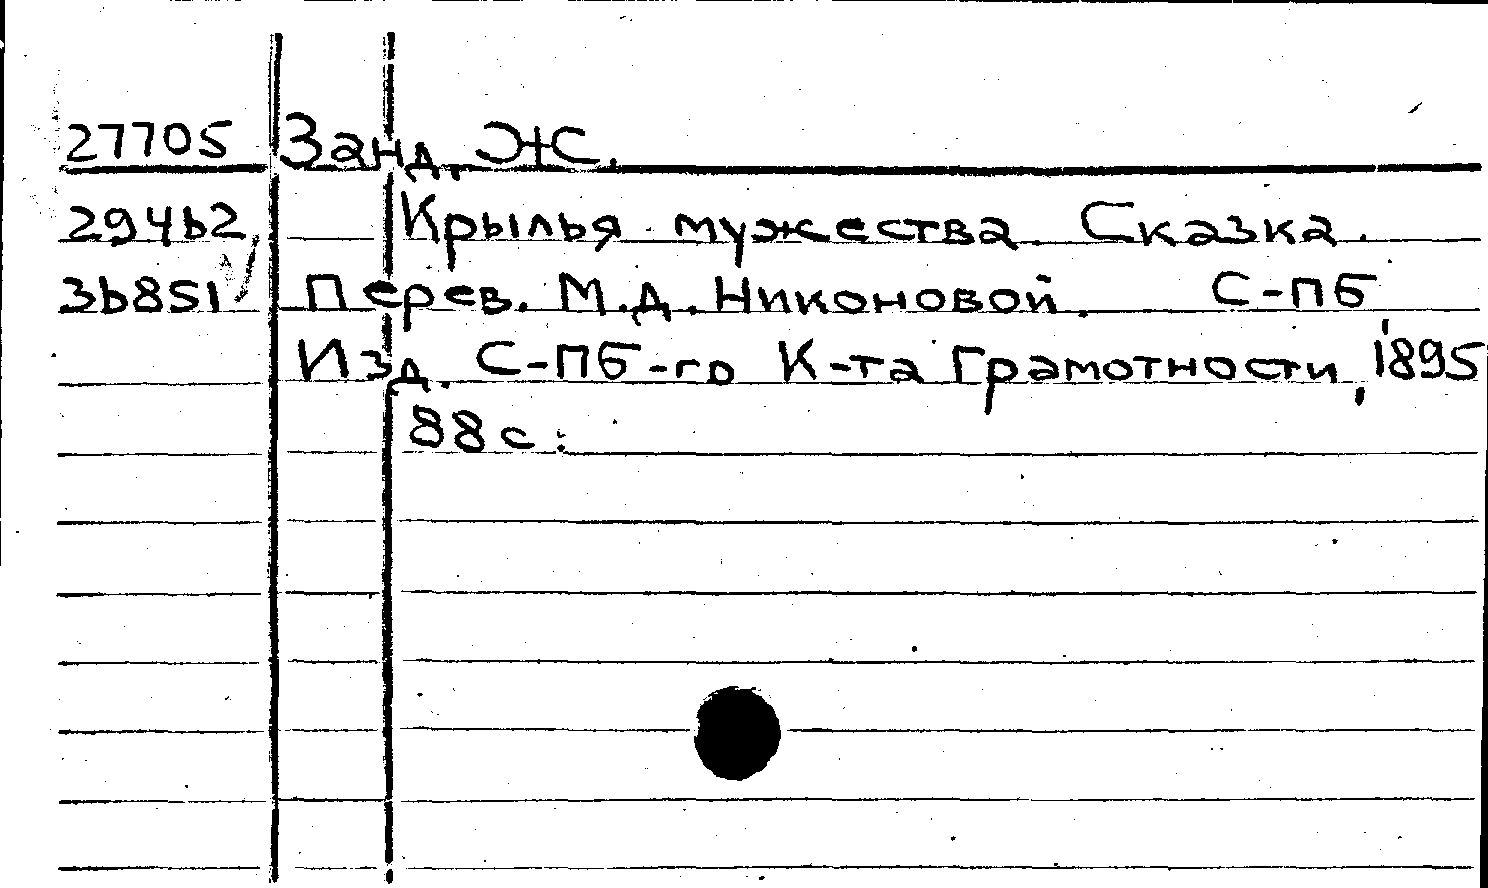 27705 Занд, Ж.
294b2 Крылья мужества. Сказка.
3b851 Перев. М.Д. Никоновой. С-ПБ
Изд. С-ПБ-го К-та Грамотности, 1895
88 с.